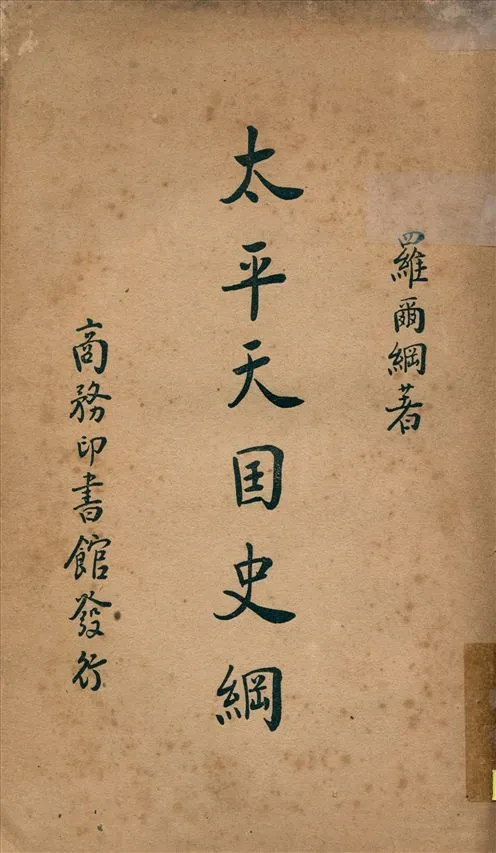 羅爾綱著
太平天囯史綱
商務印書館發行